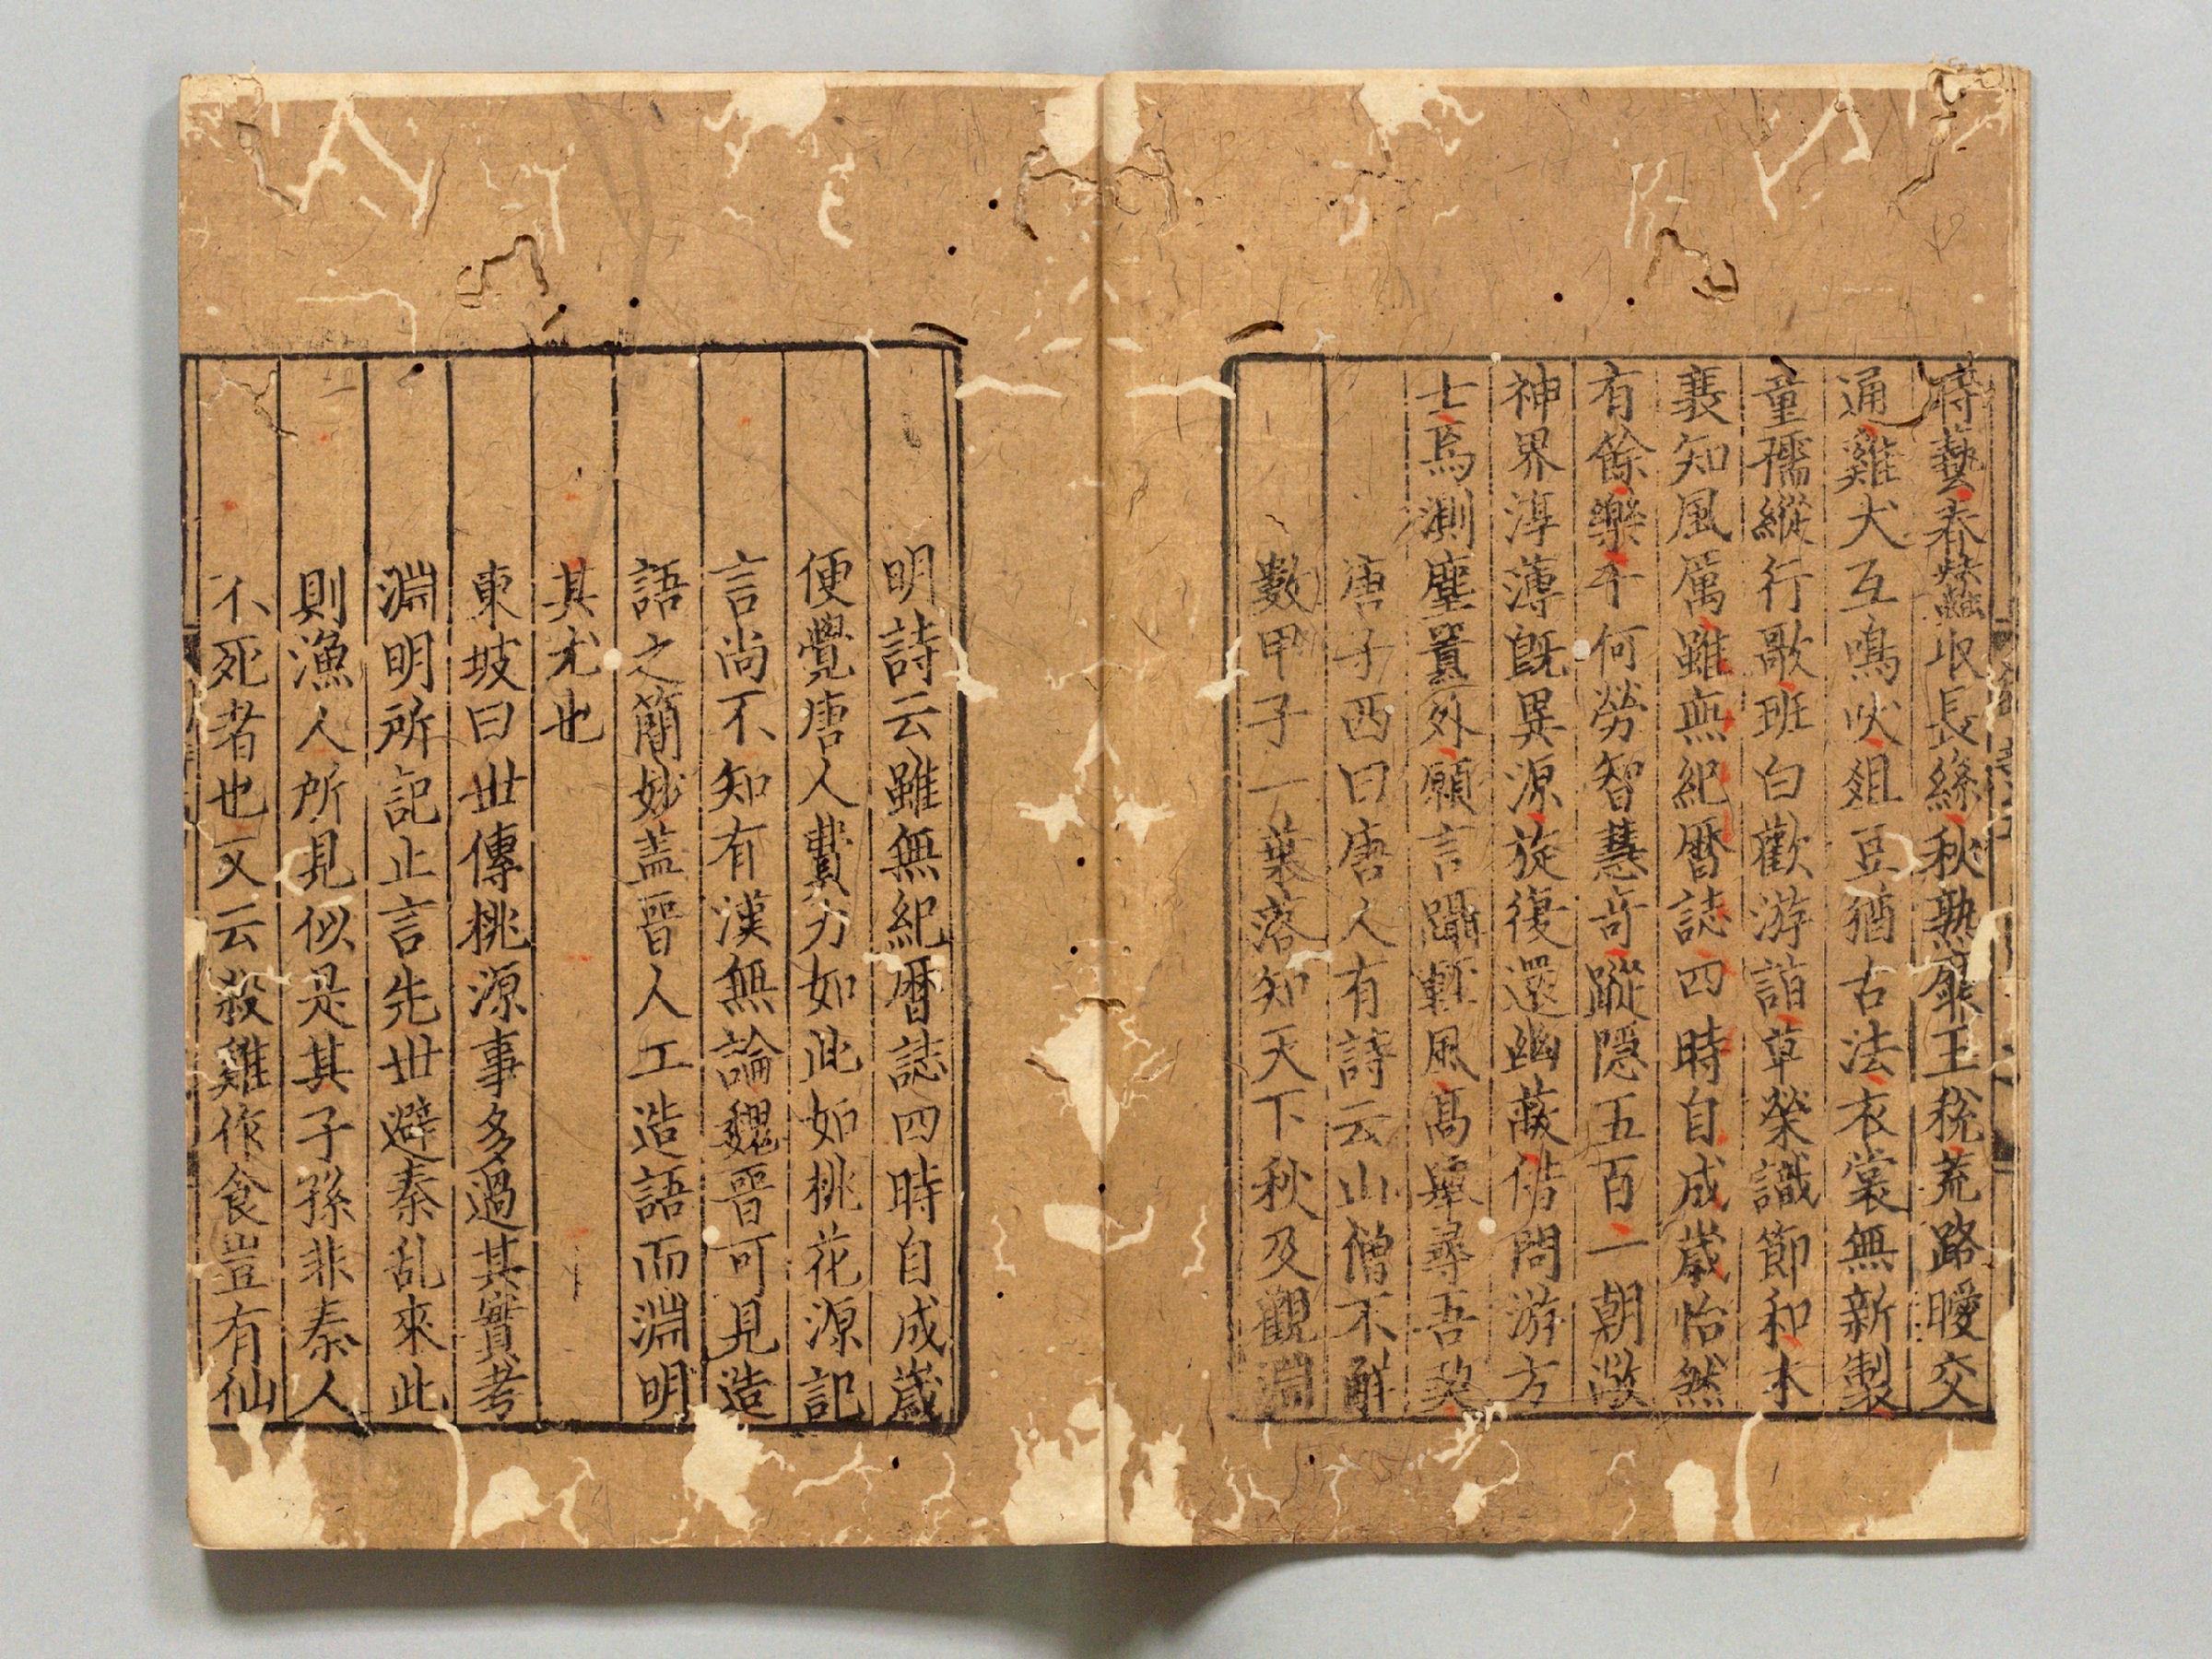 時藝春蠶收長絲秋熟靡王稅荒路曖交
通雞犬互鳴吠俎豆猶古法衣裳無新製
童孺縱行歌班白歡游詣草榮識節和木
衰知風厲雖無紀曆誌四時自成歲怡然
有餘樂于何勞智慧奇蹤隱五百一朝敞
神界淳薄旣異源旋復還幽蔽借問游方
士焉測塵囂外願言躡輕風高舉尋吾契
唐子西曰唐人有詩云山僧不解
數甲子一葉落知天下秋及觀淵
明詩云雖無紀曆誌四時自成歲
便覺唐人費力如此如桃花源記
言尚不知有漢無論魏晉可見造
語之簡妙盖晉人工造語而淵明
其尤也
東坡曰世傳桃源事多過其實考
淵明所記止言先世避秦乱來此
則漁人所見似是其子孫非秦人
不死者也又云殺雞作食豈有仙